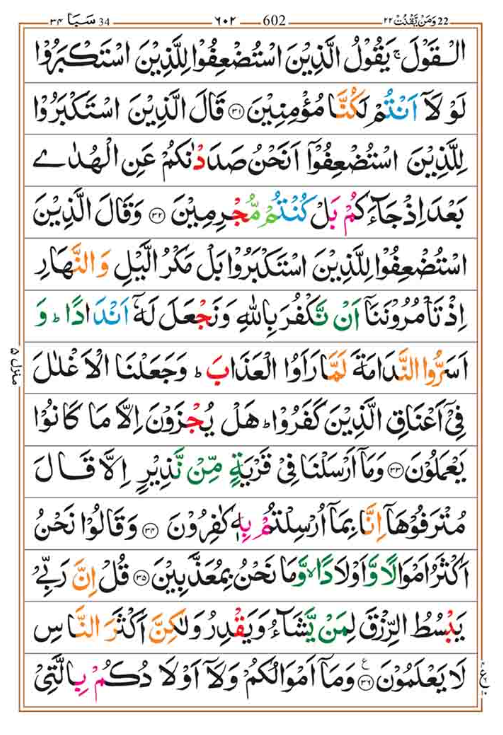 سَبَا ٣٤ 34 602 ٦٠٢ وَمَنْ يَّقْنُتْ ٢٢ 22
الْقَوْلَ ۚ يَقُوْلُ الَّذِيْنَ اسْتُضْعِفُوْا لِلَّذِيْنَ اسْتَكْبَرُوْا
لَوْ لَاۤ اَنْتُمْ لَكُنَّا مُؤْمِنِيْنَ ۝٣١ قَالَ الَّذِيْنَ اسْتَكْبَرُوْا
لِلَّذِيْنَ اسْتُضْعِفُوْۤا اَنَحْنُ صَدَدْنٰكُمْ عَنِ الْهُدٰى
بَعْدَ اِذْ جَآءَكُمْ بَلْ كُنْتُمْ مُّجْرِمِيْنَ ۝٣٢ وَقَالَ الَّذِيْنَ
اسْتُضْعِفُوْا لِلَّذِيْنَ اسْتَكْبَرُوْا بَلْ مَكْرُ الَّيْلِ وَالنَّهَارِ
اِذْ تَاْمُرُوْنَنَاۤ اَنْ نَّكْفُرَ بِاللّٰهِ وَنَجْعَلَ لَهٗۤ اَنْدَادًا ؕ وَ
اَسَرُّوا النَّدَامَةَ لَمَّا رَاَوُا الْعَذَابَ ؕ وَجَعَلْنَا الْاَغْلٰلَ
فِيْۤ اَعْنَاقِ الَّذِيْنَ كَفَرُوْا ؕ هَلْ يُجْزَوْنَ اِلَّا مَا كَانُوْا
يَعْمَلُوْنَ ۝٣٣ وَمَاۤ اَرْسَلْنَا فِيْ قَرْيَةٍ مِّنْ نَّذِيْرٍ اِلَّا قَالَ
مُتْرَفُوْهَاۤ اِنَّا بِمَاۤ اُرْسِلْتُمْ بِهٖ كٰفِرُوْنَ ۝٣٤ وَقَالُوْا نَحْنُ
اَكْثَرُ اَمْوَالًا وَّاَوْلَادًا ۙ وَّمَا نَحْنُ بِمُعَذَّبِيْنَ ۝٣٥ قُلْ اِنَّ رَبِّيْ
يَبْسُطُ الرِّزْقَ لِمَنْ يَّشَآءُ وَيَقْدِرُ وَلٰكِنَّ اَكْثَرَ النَّاسِ
لَا يَعْلَمُوْنَ ۝٣٦ ۧ وَمَاۤ اَمْوَالُكُمْ وَلَاۤ اَوْلَادُكُمْ بِالَّتِيْ
منزل ٥